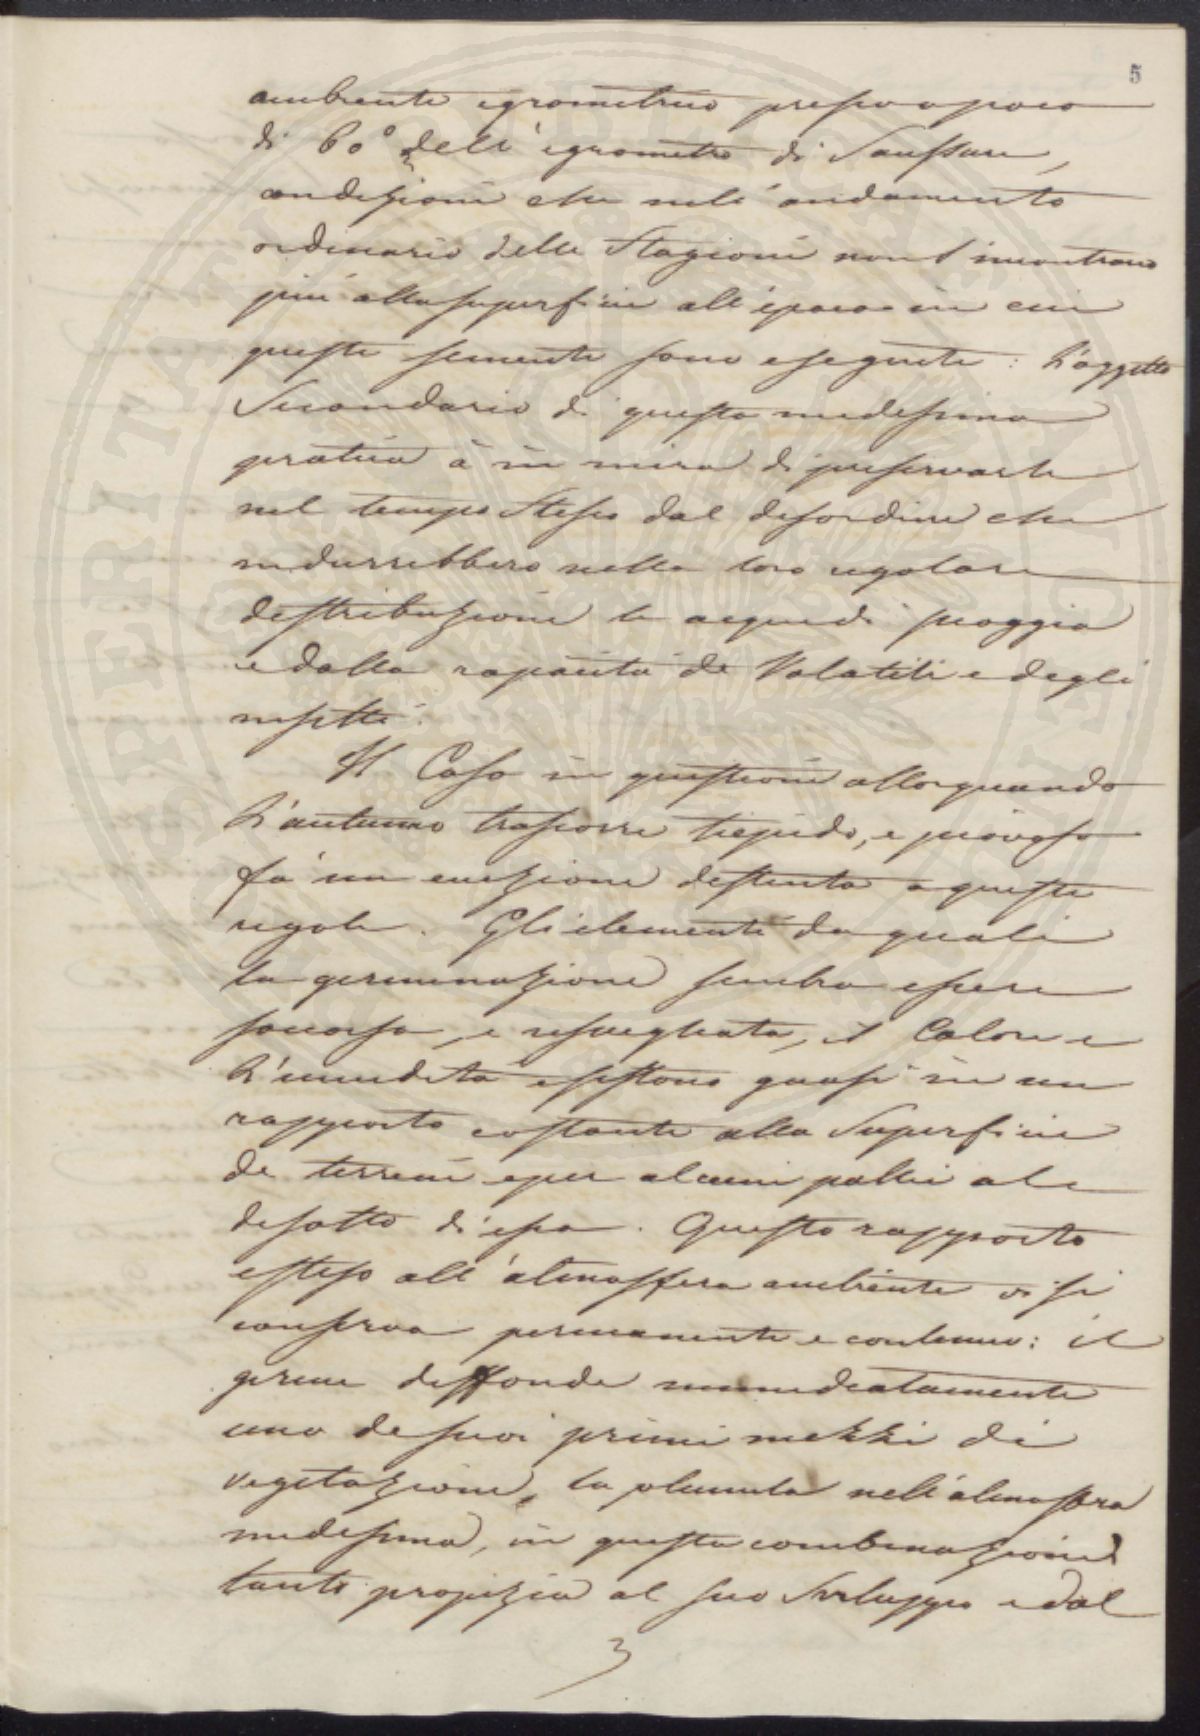 5
ambiente igrometrico presso a poco
di 60° dell'igrometro di Saussure,
condizioni che nell'andamento
ordinario delle Stagioni non s'incontrano
più alla superficie all'epoca in cui
queste sementi sono eseguite: L'oggetto
Secondario di questa medesima
pratica à in mira di preservarle
nel tempo Stesso dal desordine che
indurrebbero nella loro regolare
destribuzione le acque di pioggia
e dalla rapacità de Volatili e degli
insetti.
Il Caso in questione allorquando
L'autunno trascorre tiepido, e piovoso
fà un eccezione destinta a queste
regole. Gli elementi da quali
la germinazione sembra essere
soccorsa, e resvegliata, il Calore e
L'umedità esistono quasi in un
rapporto costante alla Superficie
de terreni e per alcuni pollici al
desotto d'essa. Questo rapporto
esteso all'atmosfera ambiente vi si
conserva permanente e continuo: il
germe deffonde immediatamente
uno de suoi primi mezzi di
vegetazione, la plumula nell'atmosfera
medesima, in questa combinazione
tanto propizia al suo Sviluppo e dal
3
PERITATI PUBLICAE